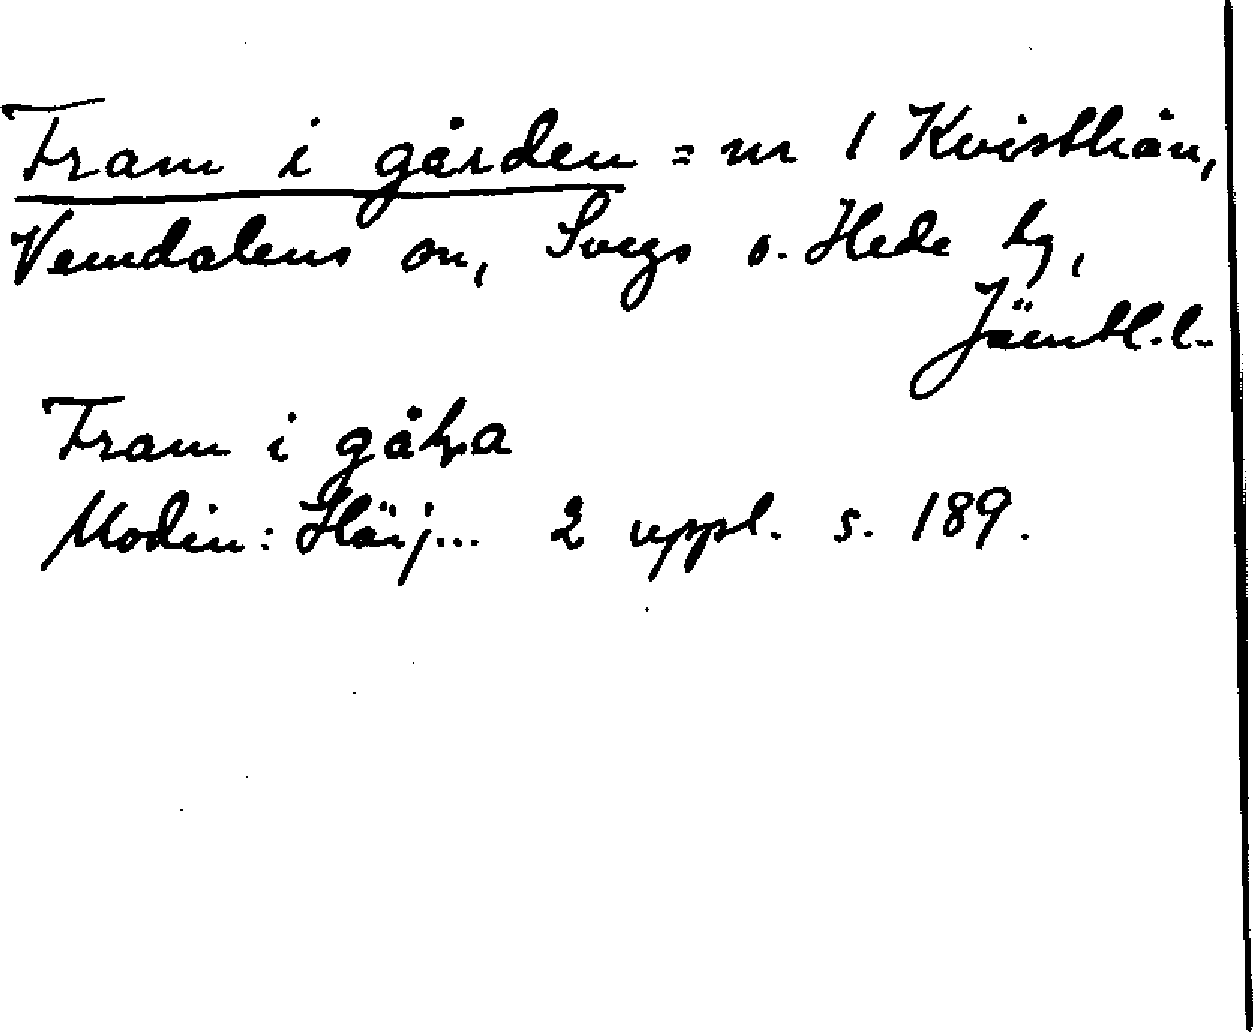 Fram i gården = nr 1 Kvisthån,
Vemdalens sn, Svegs o. Hede tg,
Jämtl.l.
Fram i gåḷa
Modin: Härj... 2 uppl. s. 189.